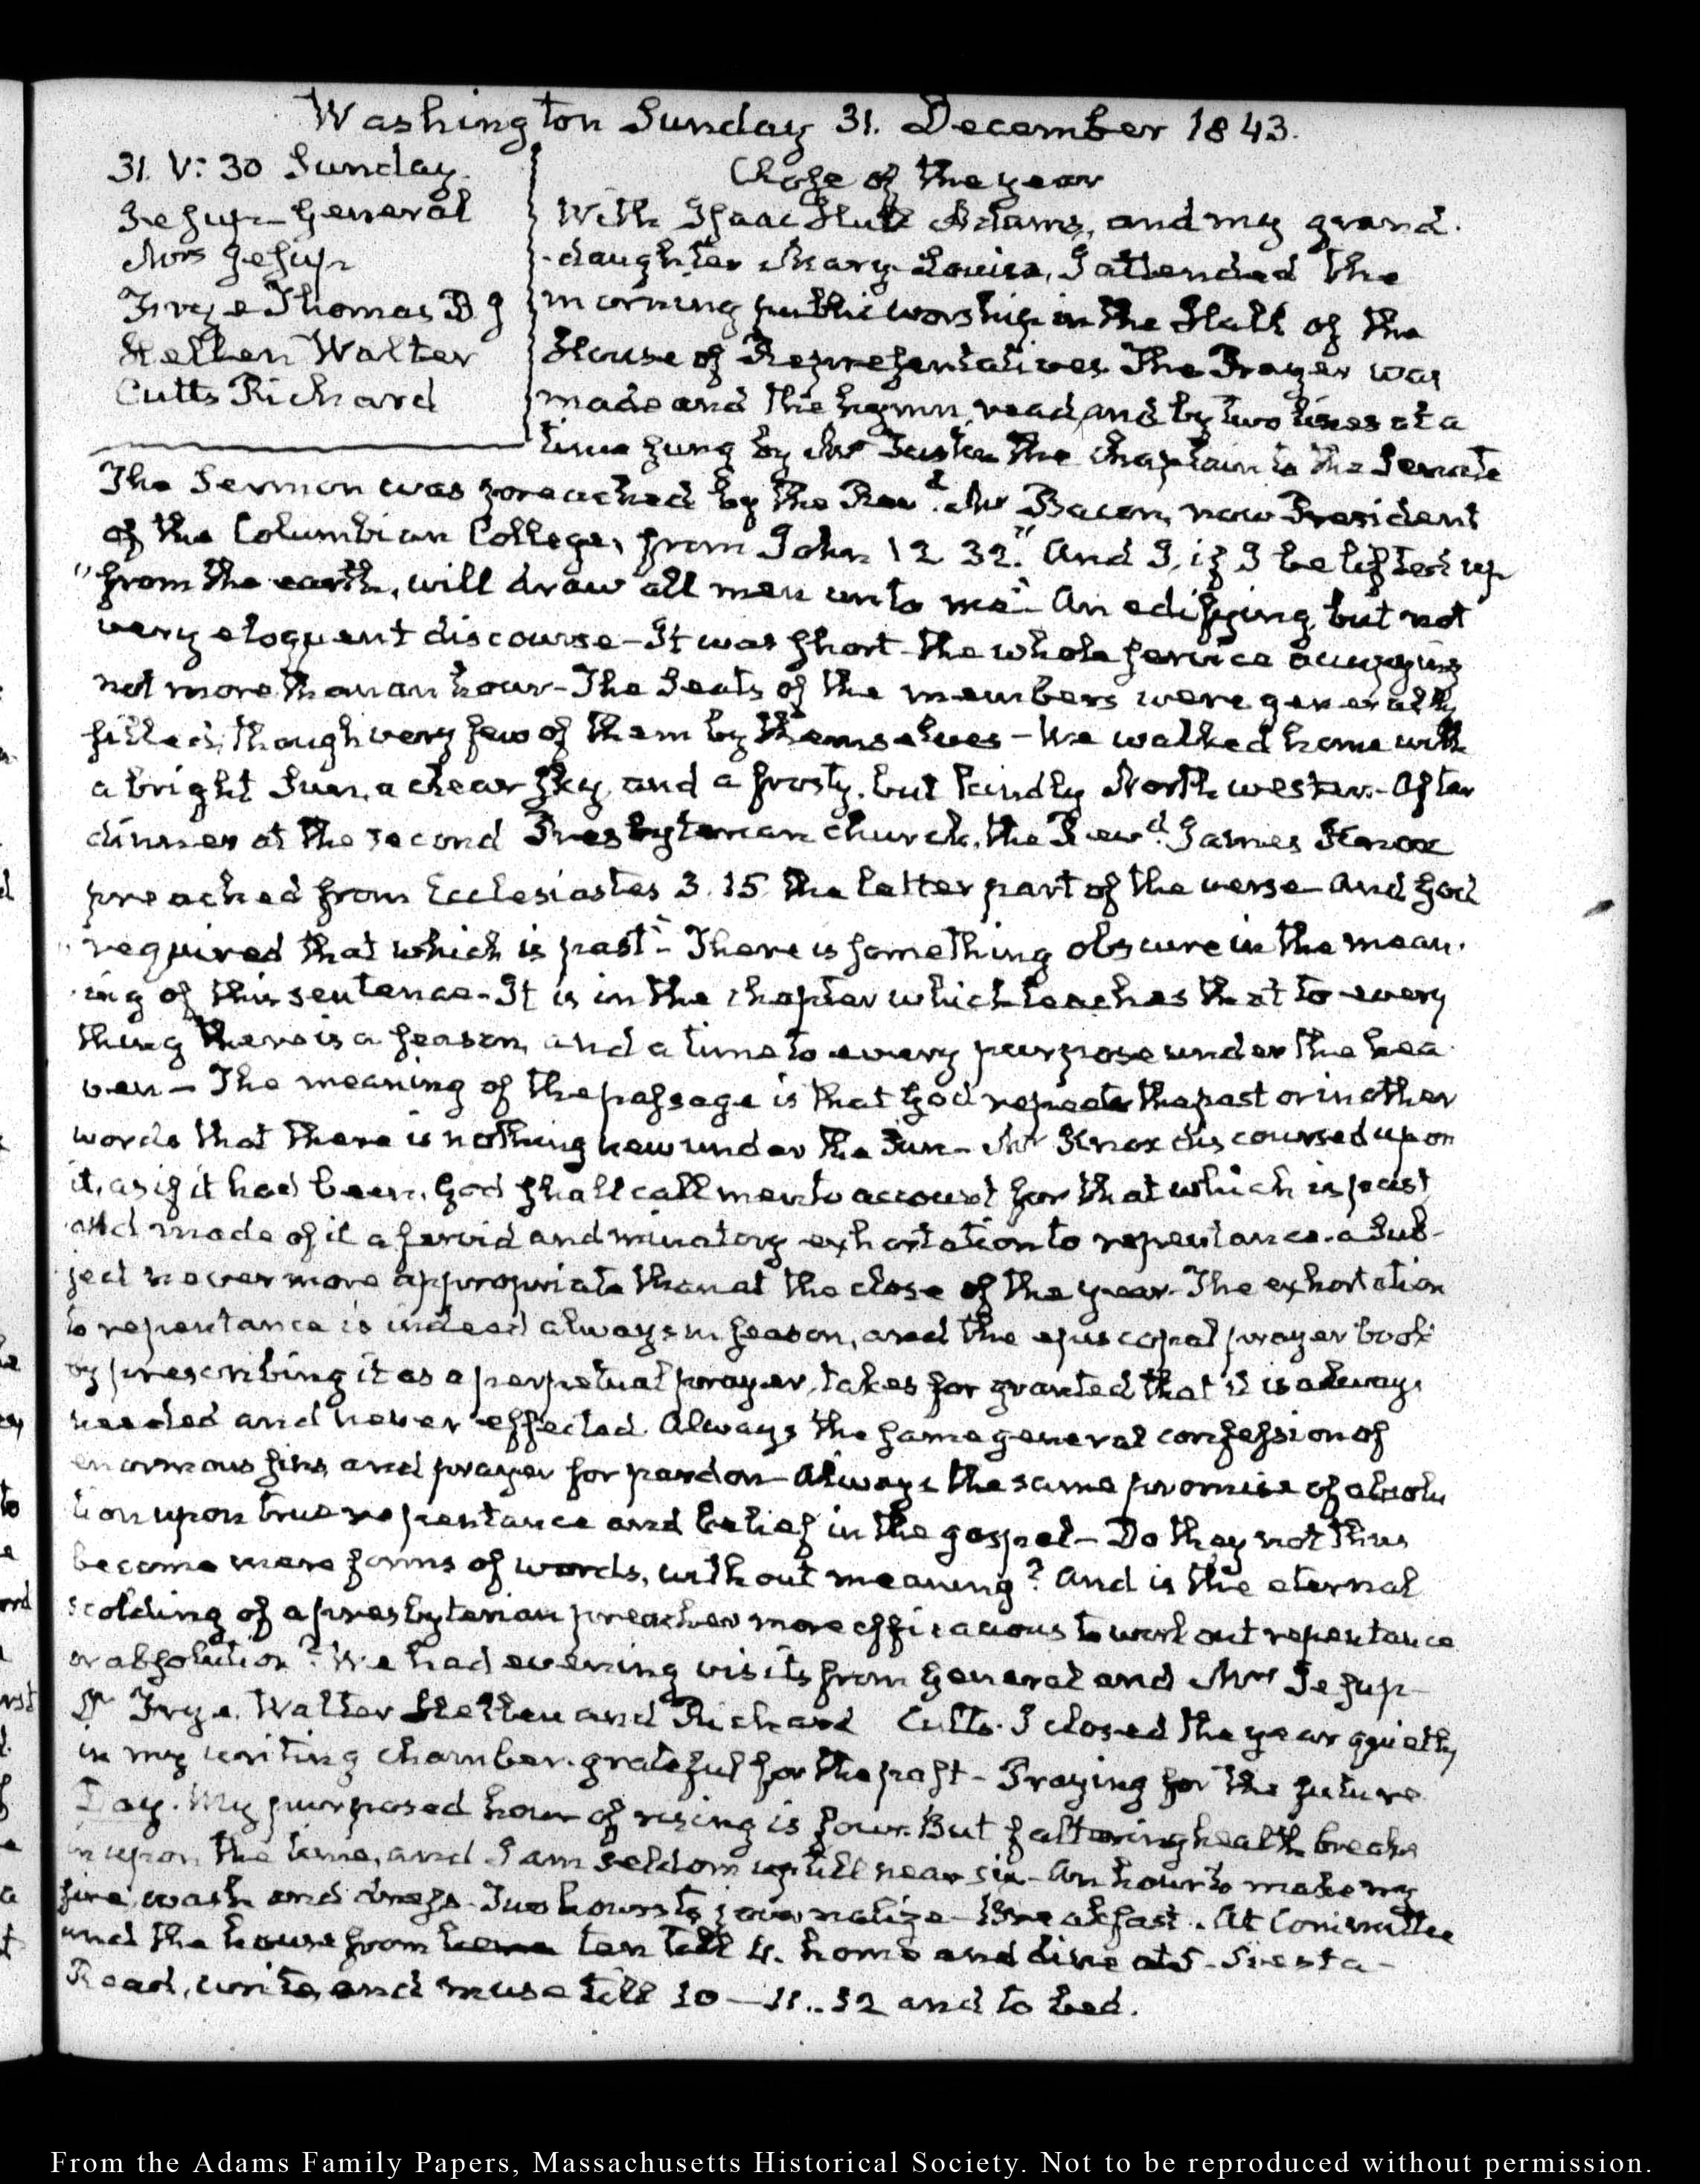 Washington Sunday 31. December 1843.
31. V: 30 Sunday.
Jesup—General
Mrs Jesup
Frye Thomas B J
Hellen Walter
Cutts Richard
Close of the year
With Isaac Hull Adams, and my grand-
-daughter Mary-Louisa, I attended the
morning public worship in the Hall of the
House of Representatives. The Prayer was
made and the hymn, read, and by two lines at a
time sung by Mr Tustin the Chaplain to the Senate
The Sermon was preached by the Revd. Mr Bacon, now President
of the Columbian College, from John 12 32. "And I, if I be lifted up
"from the earth, will draw all men unto me"— An edifying, but not
very eloquent discourse—It was short—the whole service occupying
not more than an hour—The Seats of the members were generally
filled, though very few of them by themselves—We walked home with
a bright Sun, a clear sky, and a frosty, but kindly North wester.—After
dinner at the second Presbyterian church, the Revd. James Knox
preached from Ecclesiastes 3. 15. the latter part of the verse—And God
"required that which is past"— There is something obscure in the mean-
-ing of this sentence—It is in the chapter which teaches that to every
thing there is a season, and a time to every purpose under the hea-
ven—The meaning of the passage is that God repeats the past or in other
words that there is nothing new under the Sun—Mr Knox discoursed upon
it, as if it had been, God shall call men to account for that which is past,
and made of it a fervid and minatory exhortation to repentance. a Sub-
ject never more appropriate than at the close of the year—The exhortation
to repentance is indeed always in season, and the episcopal prayer book
by prescribing it as a perpetual prayer, takes for granted that it is always
needed and never effected. Always the same general confession of
enormous sins, and prayer for pardon—Always the same promise of absolu
tion upon true repentance and belief in the gospel—Do they not thus
become mere forms of words, without meaning? And is the eternal
scolding of a presbyterian preacher more efficacious to work out repentance
or absolution? We had evening visits from General and Mrs Jesup—
Dr Frye, Walter Hellen and Richard Cutts. I closed the year quietly
in my writing chamber. grateful for the past—Praying for the future
Day. My purposed hour of rising is four. But faltering health breaks
in upon the time, and I am seldom up till near six—An hour to make my
fire, wash and dress. Two hours to journalize—Breakfast. At Committee
and the house from ten till 4. home and dine at 5—Siesta—
Read, write, and muse till 10—11..12 and to bed.
From the Adams Family Papers, Massachusetts Historical Society. Not to be reproduced without permission.